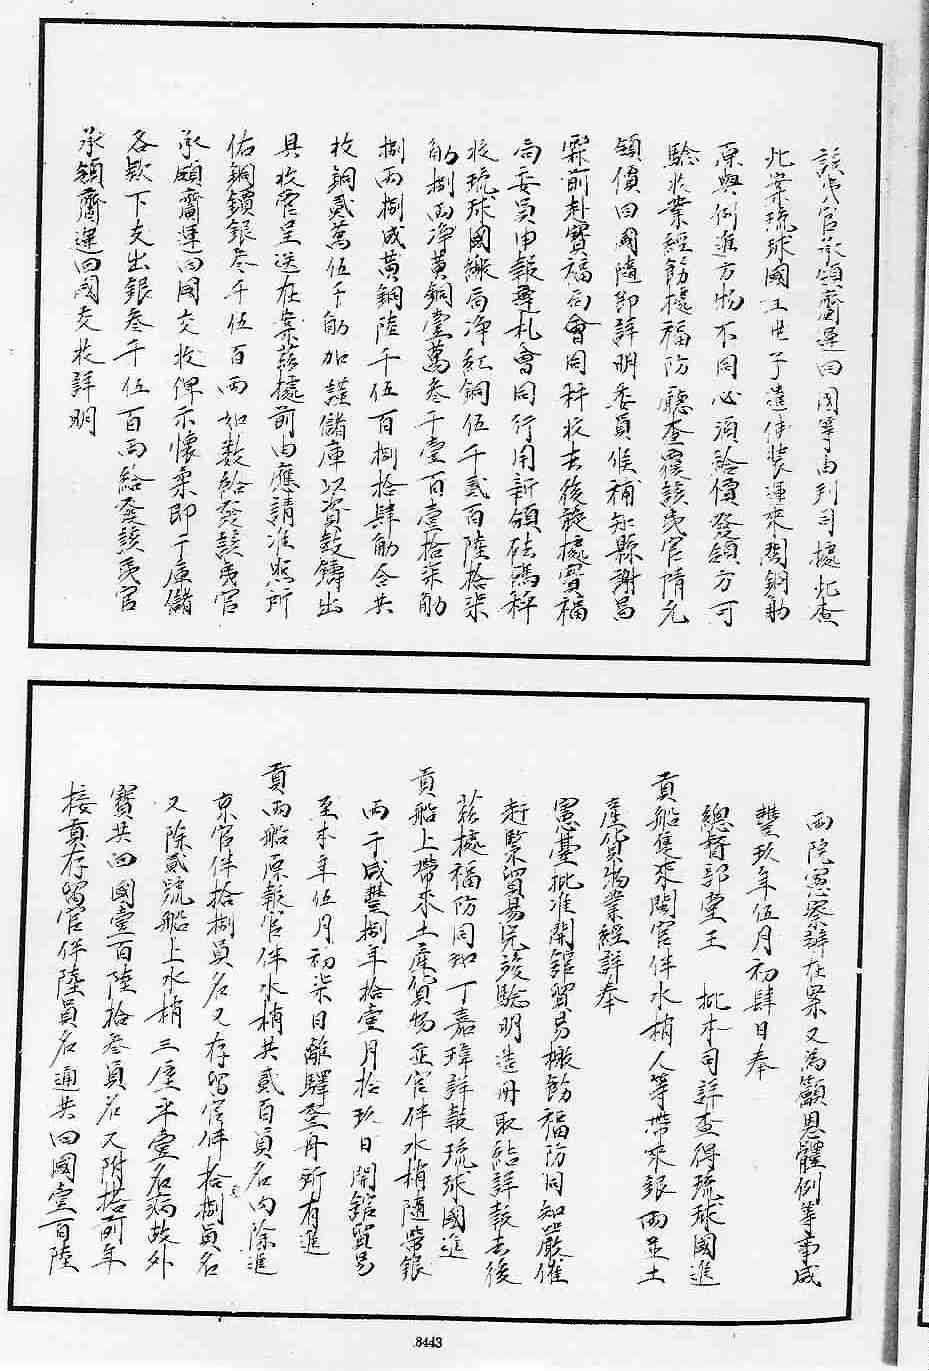 該夷官承領齎運回國等由到司據此查
此案琉球國王世子遣使裝運來閩銅觔
原與例進方物不同必須給價發領方可
驗收業經飭據福防廳查覆該夷官隋元
領價回國隨即詳明委員候補知縣謝昌
霖前赴寶福局會同秤收去後旋據寶福
局委員申報遵札會同行用新頒砝碼秤
收琉球國繳局淨紅銅伍千貳百陸拾柒
觔捌兩淨黃銅壹萬叁千壹百壹拾柒觔
捌兩捌成黃銅陸千伍百捌拾肆觔今共
收銅貳萬伍千觔加謹儲庫以資鼓鑄出
具收管呈送在案茲據前由應請准照所
佑銅鑽銀叁千伍百兩如數給發該夷官
承領齎運回國交收俾示懷柔即于庫儲
各款下支出銀叁千伍百兩給發該夷官
承領齎運回國交收詳明
兩院憲察辦在案又為籲恩體例等事咸
豐玖年伍月初肆日奉
總督部堂王 批本司詳查得琉球國進
貢船隻來閩官伴水梢人等帶來銀兩並土
產貨物業經詳奉
憲臺批准開館貿易檄飭福防同知嚴催
赶緊貿易完竣驗明造冊取結詳報去後
茲據福防同知丁嘉瑋詳報琉球國進
貢船上帶來土產貨物並官伴水梢隨帶銀
兩于咸豐捌年拾壹月拾玖日開館貿易
至本年伍月初柒日離驛登舟所有進
貢兩船原報官伴水梢共貳百員名內除進
京官伴拾捌員名又存留官伴拾捌員名
又除貳號船上水梢三屋平壹名病故外
實共回國壹百陸拾叁員名又附搭前年
接貢存留官伴陸員名通共回國壹百陸
8443